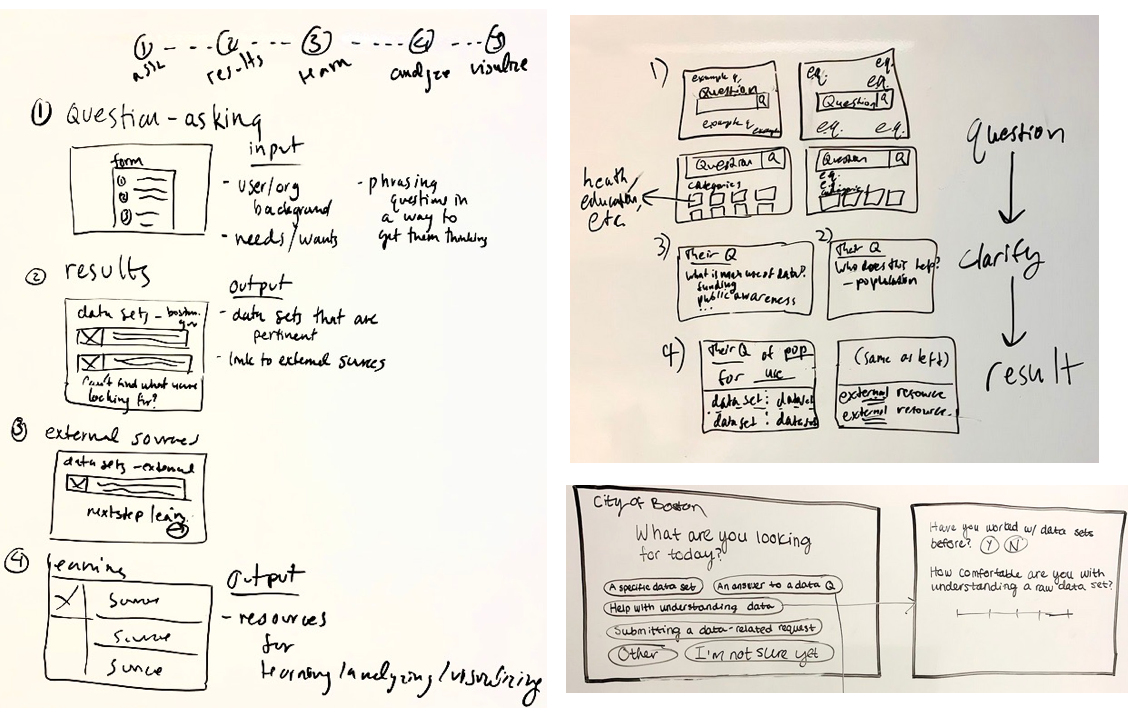 ① ② ③ ④ ⑤
ask results learn analyze visualize
① Question-asking
form
①
②
③
input
- user/org background
- needs/wants
- phrasing questions in a way to get them thinking
② results
data sets - boston.gov
can't find what you're looking for?
output
- data sets that are pertinent
- link to external sources
③ external sources
data sets - external
next step learn
④ learning
source
source
source
output
- resources for learning/analyzing/visualizing
1)
example q.
Question
Q
example q
example
e.q.
e.q.
e.q.
Question Q
e.q.
e.q.
Question Q
categories
health education, etc.
Question Q
e.q.
e.q.
categories
3)
Their Q
What is main use of data?
funding
public awareness
...
2)
Their Q
Who does this help?
- population
4)
Their Q of pop
for use
data set : dataset
data set : dataset
(same as left)
external resource
external resource
question
clarify
result
City of Boston
What are you looking
for today?
A specific data set
An answer to a data Q
Help with understanding data
Submitting a data-related request
Other
I'm not sure yet
Have you worked w/ data sets
before? Y N
How comfortable are you with
understanding a raw data set?